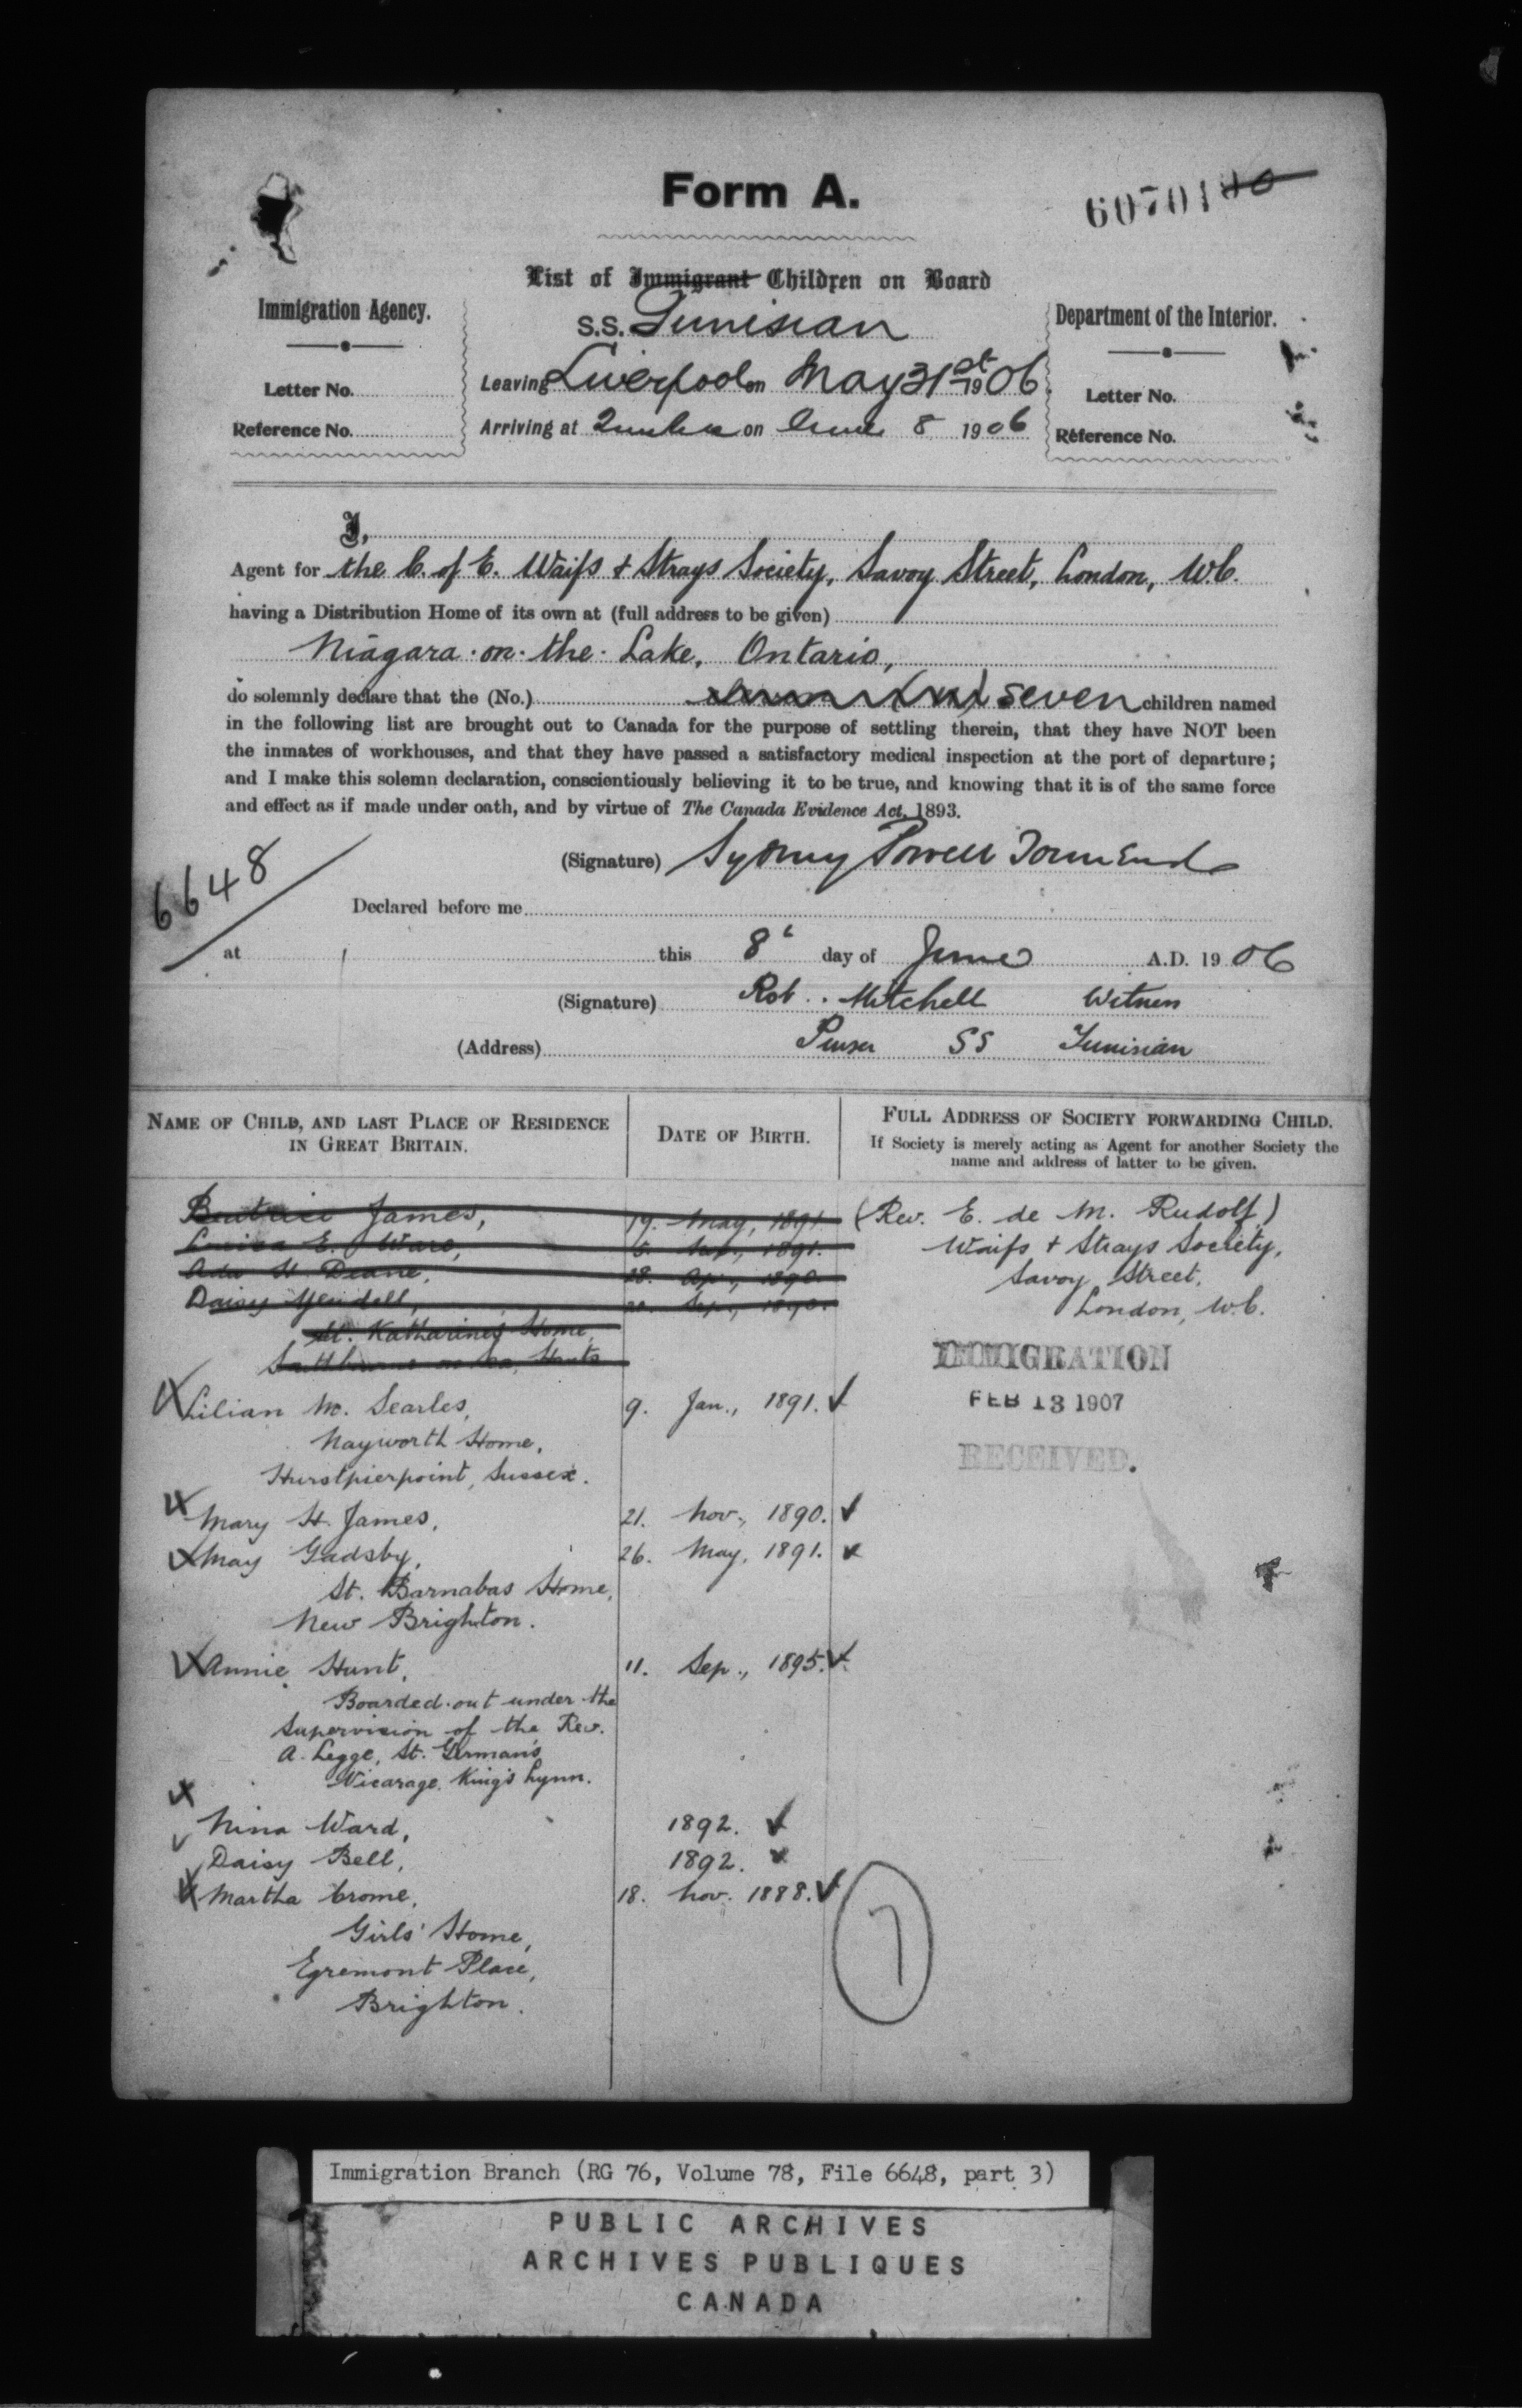 Form A.
607018
List of Immigrant Children on Board
Immigration Agency.
S.S. Tunisian
Department of the Interior.
Leaving Liverpool on May 31st 1906.
Letter No.
Letter No.
Arriving at Quebec on June 8 1906
Reference No.
Reference No.
I,
Agent for the C. of E. Waifs & Strays Society, Savoy Street, London, W.C.
having a Distribution Home of its own at (full address to be given)
Niagara-on-the-Lake, Ontario,
do solemnly declare that the (No.) seven children named
in the following list are brought out to Canada for the purpose of settling therein, that they have NOT been
the inmates of workhouses, and that they have passed a satisfactory medical inspection at the port of departure;
and I make this solemn declaration, conscientiously believing it to be true, and knowing that it is of the same force
and effect as if made under oath, and by virtue of The Canada Evidence Act, 1893.
(Signature) Sydney Powell Townsend
6648
Declared before me
at this 8 day of June A.D. 1906
(Signature) Rob. Mitchell Witness
(Address) Purser SS Tunisian
NAME OF CHILD, AND LAST PLACE OF RESIDENCE
IN GREAT BRITAIN.
DATE OF BIRTH.
FULL ADDRESS OF SOCIETY FORWARDING CHILD.
If Society is merely acting as Agent for another Society the
name and address of latter to be given.
Beatrice James, 19. May, 1891. (Rev. E. de M. Rudolf)
Louisa E. Ward, 1891. Waifs & Strays Society,
Ada H. Deane, 28. Apr., 1890. Savoy Street,
Daisy Yendell, Sep., 1890. London, W.C.
St. Katharine's Home,
Hants
IMMIGRATION
FEB 13 1907
RECEIVED.
Lilian M. Searles, 9. Jan., 1891.
Nayworth Home,
Hurstpierpoint, Sussex.
Mary H. James, 21. Nov., 1890.
May Gadsby, 26. May, 1891.
St. Barnabas Home,
New Brighton.
Annie Hunt, 11. Sep., 1895.
Boarded-out under the
supervision of the Rev.
A. Legge, St. German's
Vicarage, King's Lynn.
Nina Ward, 1892.
Daisy Bell, 1892.
Martha Crome, 18. Nov. 1888.
7
Girls' Home,
Egremont Place,
Brighton.
Immigration Branch (RG 76, Volume 78, File 6648, part 3)
PUBLIC ARCHIVES
ARCHIVES PUBLIQUES
CANADA